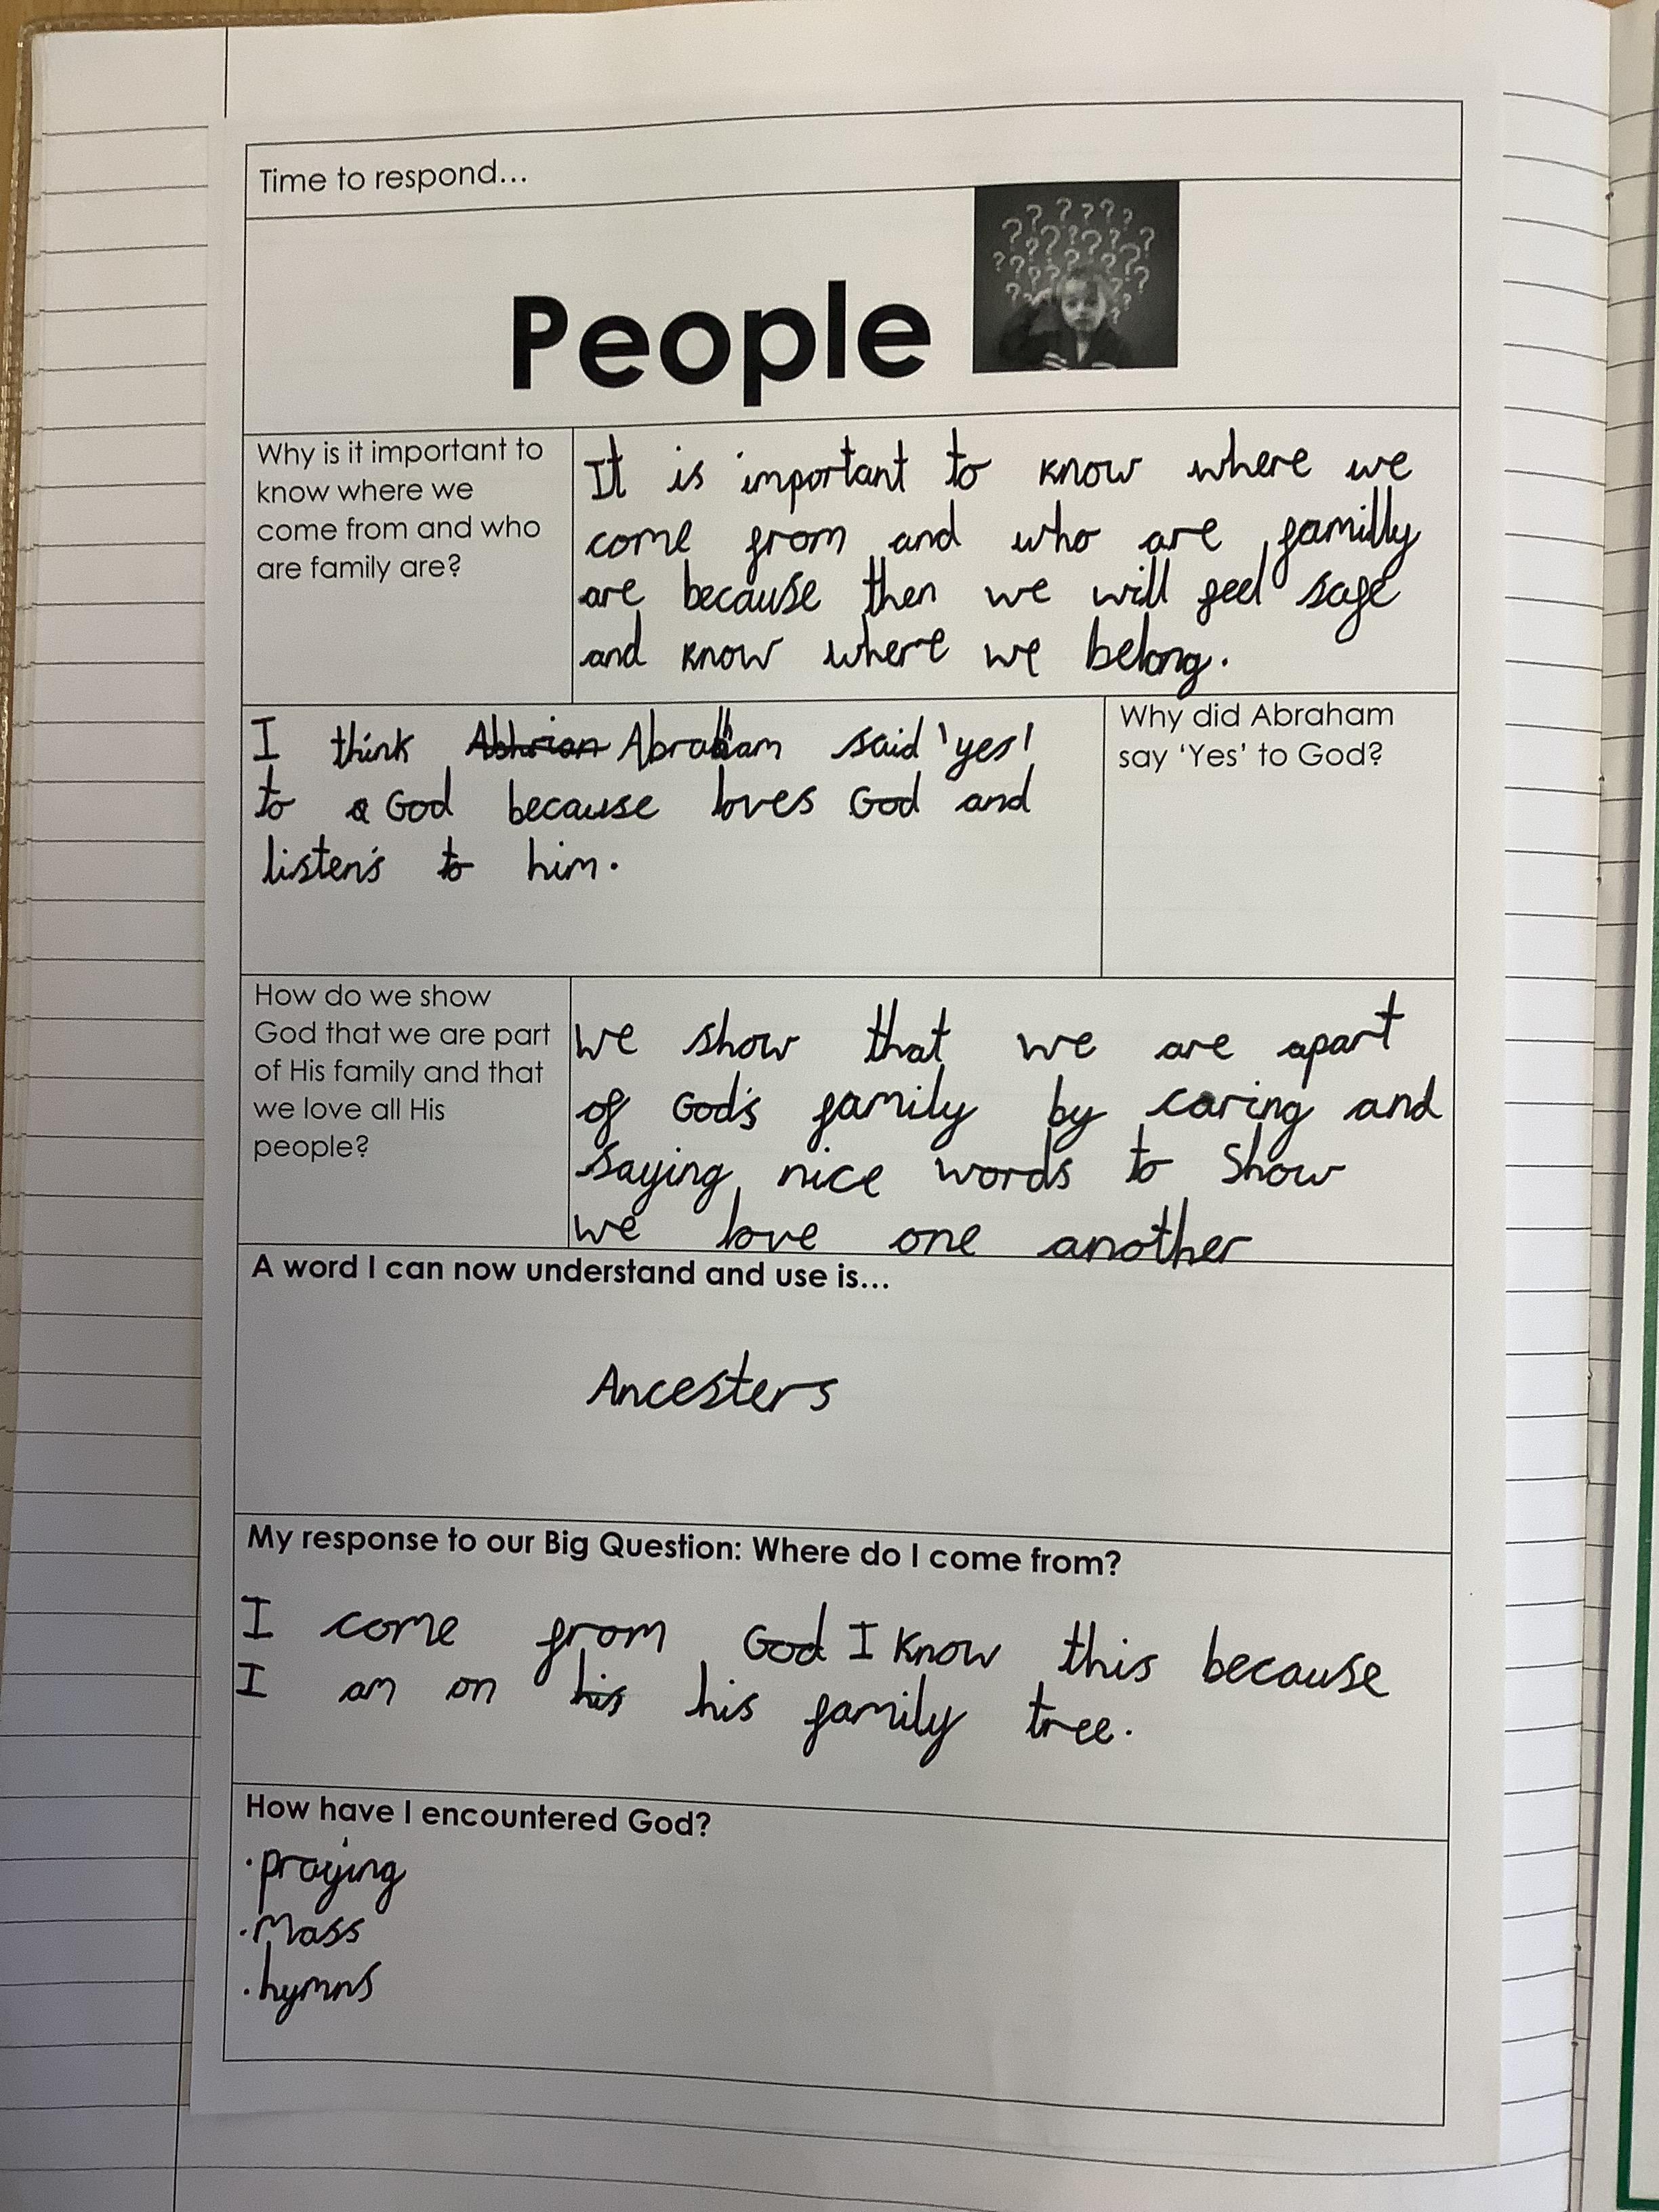 Time to respond...
People
Why is it important to
know where we
come from and who
are family are?
It is important to know where we
come from and who are familly
are because then we will feel safe
and know where we belong.
I think Abraham said 'yes'
to a God because loves God and
listen's to him.
Why did Abraham
say 'Yes' to God?
How do we show
God that we are part
of His family and that
we love all His
people?
we show that we are apart
of God's family by caring and
saying nice words to show
we love one another
A word I can now understand and use is...
Ancesters
My response to our Big Question: Where do I come from?
I come from God I know this because
I am on his his family tree.
How have I encountered God?
·praying
·Mass
·hymns